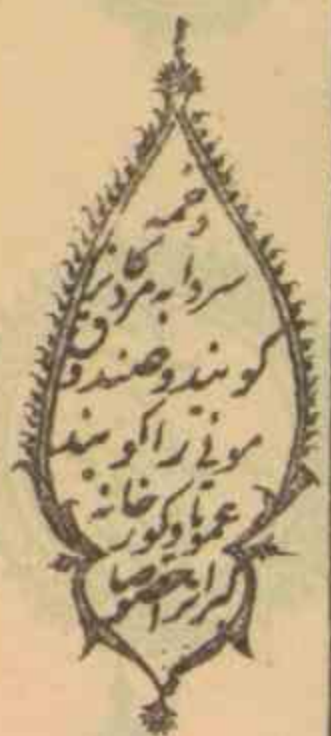 دخمه
سردابه مردکانرا
کویند و صندوق
موتی را کویند
عموما و کور خانه
کبرانرا خصوصا